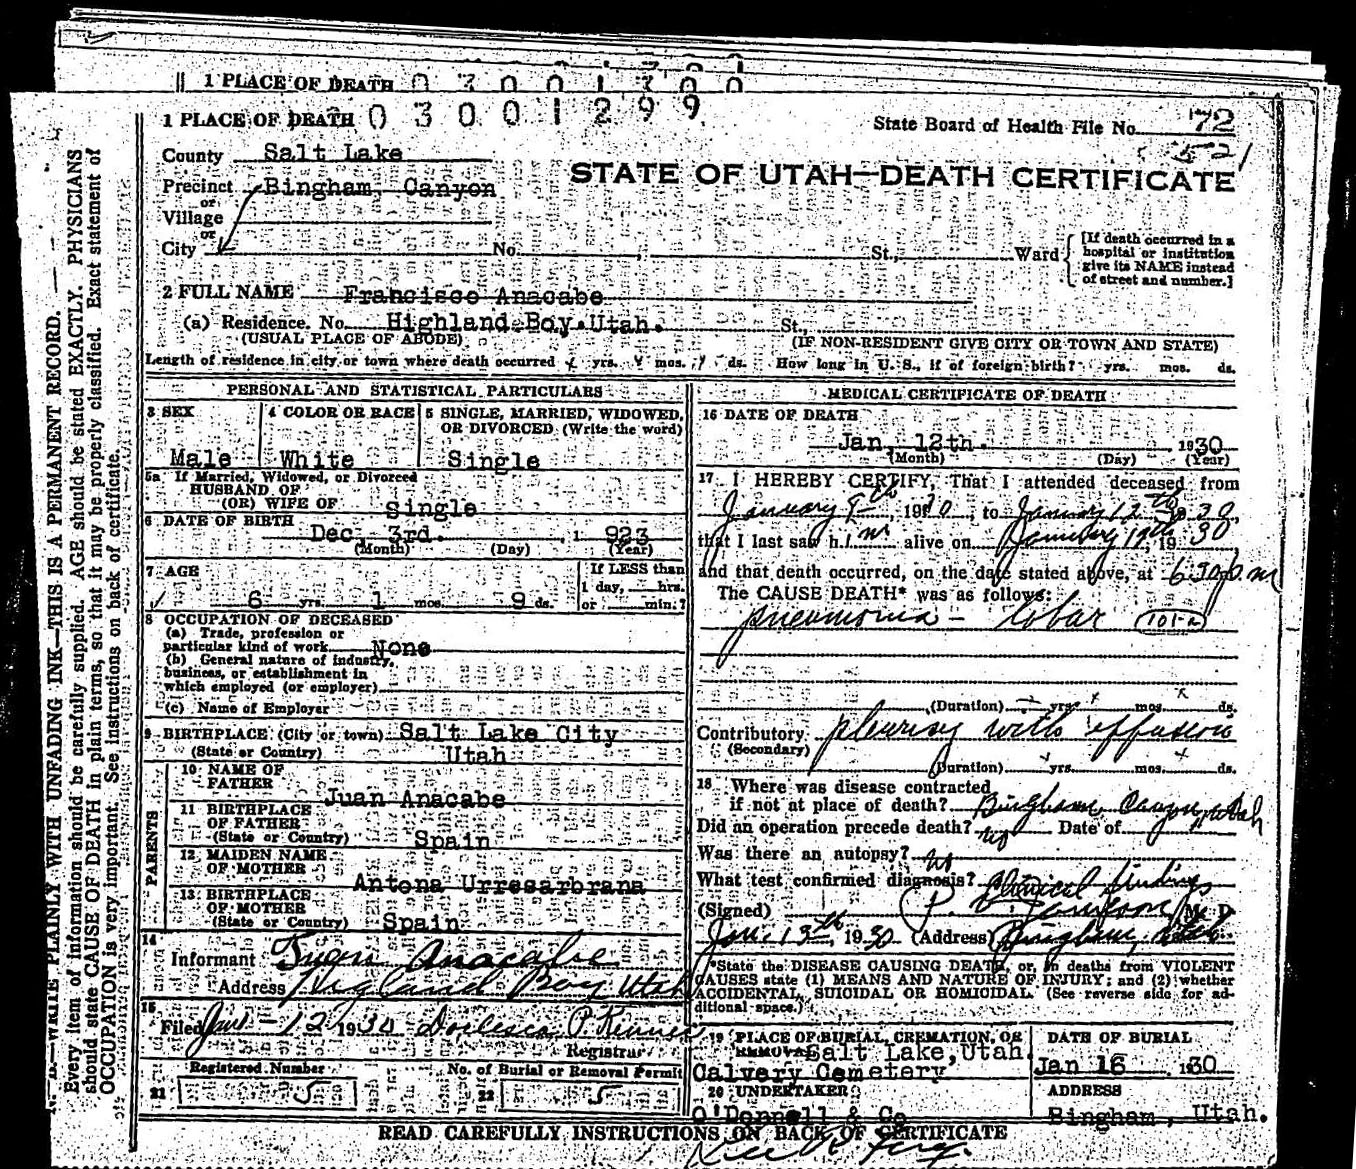 1 PLACE OF DEATH 0 3 0 0 1 3 0 0
1 PLACE OF DEATH 0 3 0 0 1 2 9 9
State Board of Health File No. 72
521
County Salt Lake
STATE OF UTAH—DEATH CERTIFICATE
Precinct Bingham Canyon
or
Village
or
City No. , St., Ward
[If death occurred in a
hospital or institution
give its NAME instead
of street and number.]
2 FULL NAME Francisco Anacabe
(a) Residence. No. Highland Boy, Utah. St.,
(USUAL PLACE OF ABODE) (IF NON-RESIDENT GIVE CITY OR TOWN AND STATE)
Length of residence in city or town where death occurred yrs. mos. ds. How long in U. S., if of foreign birth? yrs. mos. ds.
PERSONAL AND STATISTICAL PARTICULARS
3 SEX
Male
4 COLOR OR RACE
White
5 SINGLE, MARRIED, WIDOWED,
OR DIVORCED (Write the word)
Single
5a If Married, Widowed, or Divorced
HUSBAND OF
(OR) WIFE OF Single
6 DATE OF BIRTH
Dec. 3rd. 1 923
(Month) (Day) (Year)
7 AGE
6 yrs. 1 mos. 9 ds.
If LESS than
1 day, hrs.
or min.?
8 OCCUPATION OF DECEASED
(a) Trade, profession or
particular kind of work None
(b) General nature of industry,
business, or establishment in
which employed (or employer)
(c) Name of Employer
9 BIRTHPLACE (City or town) Salt Lake City
(State or Country) Utah
PARENTS
10 NAME OF
FATHER
Juan Anacabe
11 BIRTHPLACE
OF FATHER
(State or Country) Spain
12 MAIDEN NAME
OF MOTHER
Antona Urresarbrana
13 BIRTHPLACE
OF MOTHER
(State or Country) Spain
14
Informant Juan Anacabe
Address Highland Boy Utah
15
Filed Jan - 12 1930
Registrar
Registered Number
21 5
No. of Burial or Removal Permit
22 5
MEDICAL CERTIFICATE OF DEATH
16 DATE OF DEATH
Jan, 12th. 1930
(Month) (Day) (Year)
17 I HEREBY CERTIFY, That I attended deceased from
January 9th, 1930, to January 12th 1930,
that I last saw him alive on January 12th, 1930
and that death occurred, on the date stated above, at 6:30 p.m
The CAUSE DEATH* was as follows:
pneumonia - lobar 101-a
(Duration) yrs. mos. ds.
Contributory pleurisy with effusion
(Secondary)
(Duration) yrs. mos. ds.
18 Where was disease contracted
if not at place of death? Bingham Canyon, Utah
Did an operation precede death? No Date of
Was there an autopsy? No
What test confirmed diagnosis? Clinical findings
(Signed) M. D.
Jan. 13th, 1930 (Address) Bingham, Utah
*State the DISEASE CAUSING DEATH, or, in deaths from VIOLENT
CAUSES state (1) MEANS AND NATURE OF INJURY; and (2) whether
ACCIDENTAL, SUICIDAL OR HOMICIDAL. (See reverse side for ad-
ditional space.)
19 PLACE OF BURIAL, CREMATION, OR
REMOVAL Salt Lake, Utah.
Calvery Cemetery
DATE OF BURIAL
Jan 16 1930
20 UNDERTAKER
O'Donnell & Co
ADDRESS
Bingham, Utah.
READ CAREFULLY INSTRUCTIONS ON BACK OF CERTIFICATE
N. B.—WRITE PLAINLY WITH UNFADING INK—THIS IS A PERMANENT RECORD.
Every item of information should be carefully supplied. AGE should be stated EXACTLY. PHYSICIANS
should state CAUSE OF DEATH in plain terms, so that it may be properly classified. Exact statement of
OCCUPATION is very important. See instructions on back of certificate.